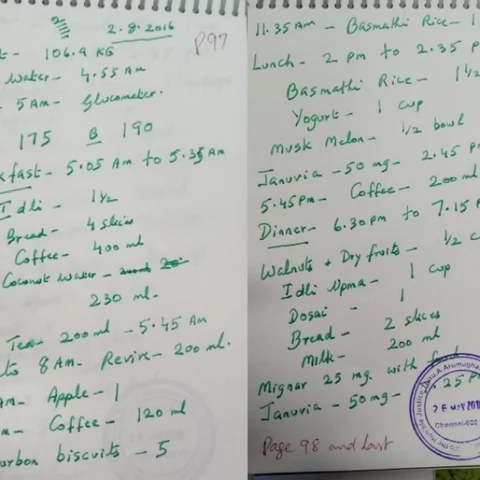 2.8.2016
P97
106.9 KG
water - 4.55 Am
5 Am - Glucometer.
175 B 190
kfast - 5.05 Am to 5.35 Am
Idli - 1½
Bread - 4 slices
Coffee - 400 ml
Coconut water -
230 ml.
Tea 200 ml - 5.45 Am
to 8 Am - Revive - 200 ml.
Am - Apple - 1
Coffee - 120 ml
urbon biscuits - 5
11.35 Am - Basmathi Rice - 1
Lunch - 2 pm to 2.35 p
Basmathi Rice - 1½
Yogurt - 1 cup
Musk Melon - ½ bowl
Januvia - 50 mg - 2.45 p
5.45 Pm - Coffee - 200 ml
Dinner - 6.30 pm to 7.15 P
Walnuts + Dry fruits - ½ c
Idli Upma - 1 cup
Dosai - 1
Bread - 2 slices
Milk - 200 ml
Mignar 25 mg. with food
Januvia - 50 mg - 25 P
Page 98 and last
Justice A. Arumugha
Chennai-600